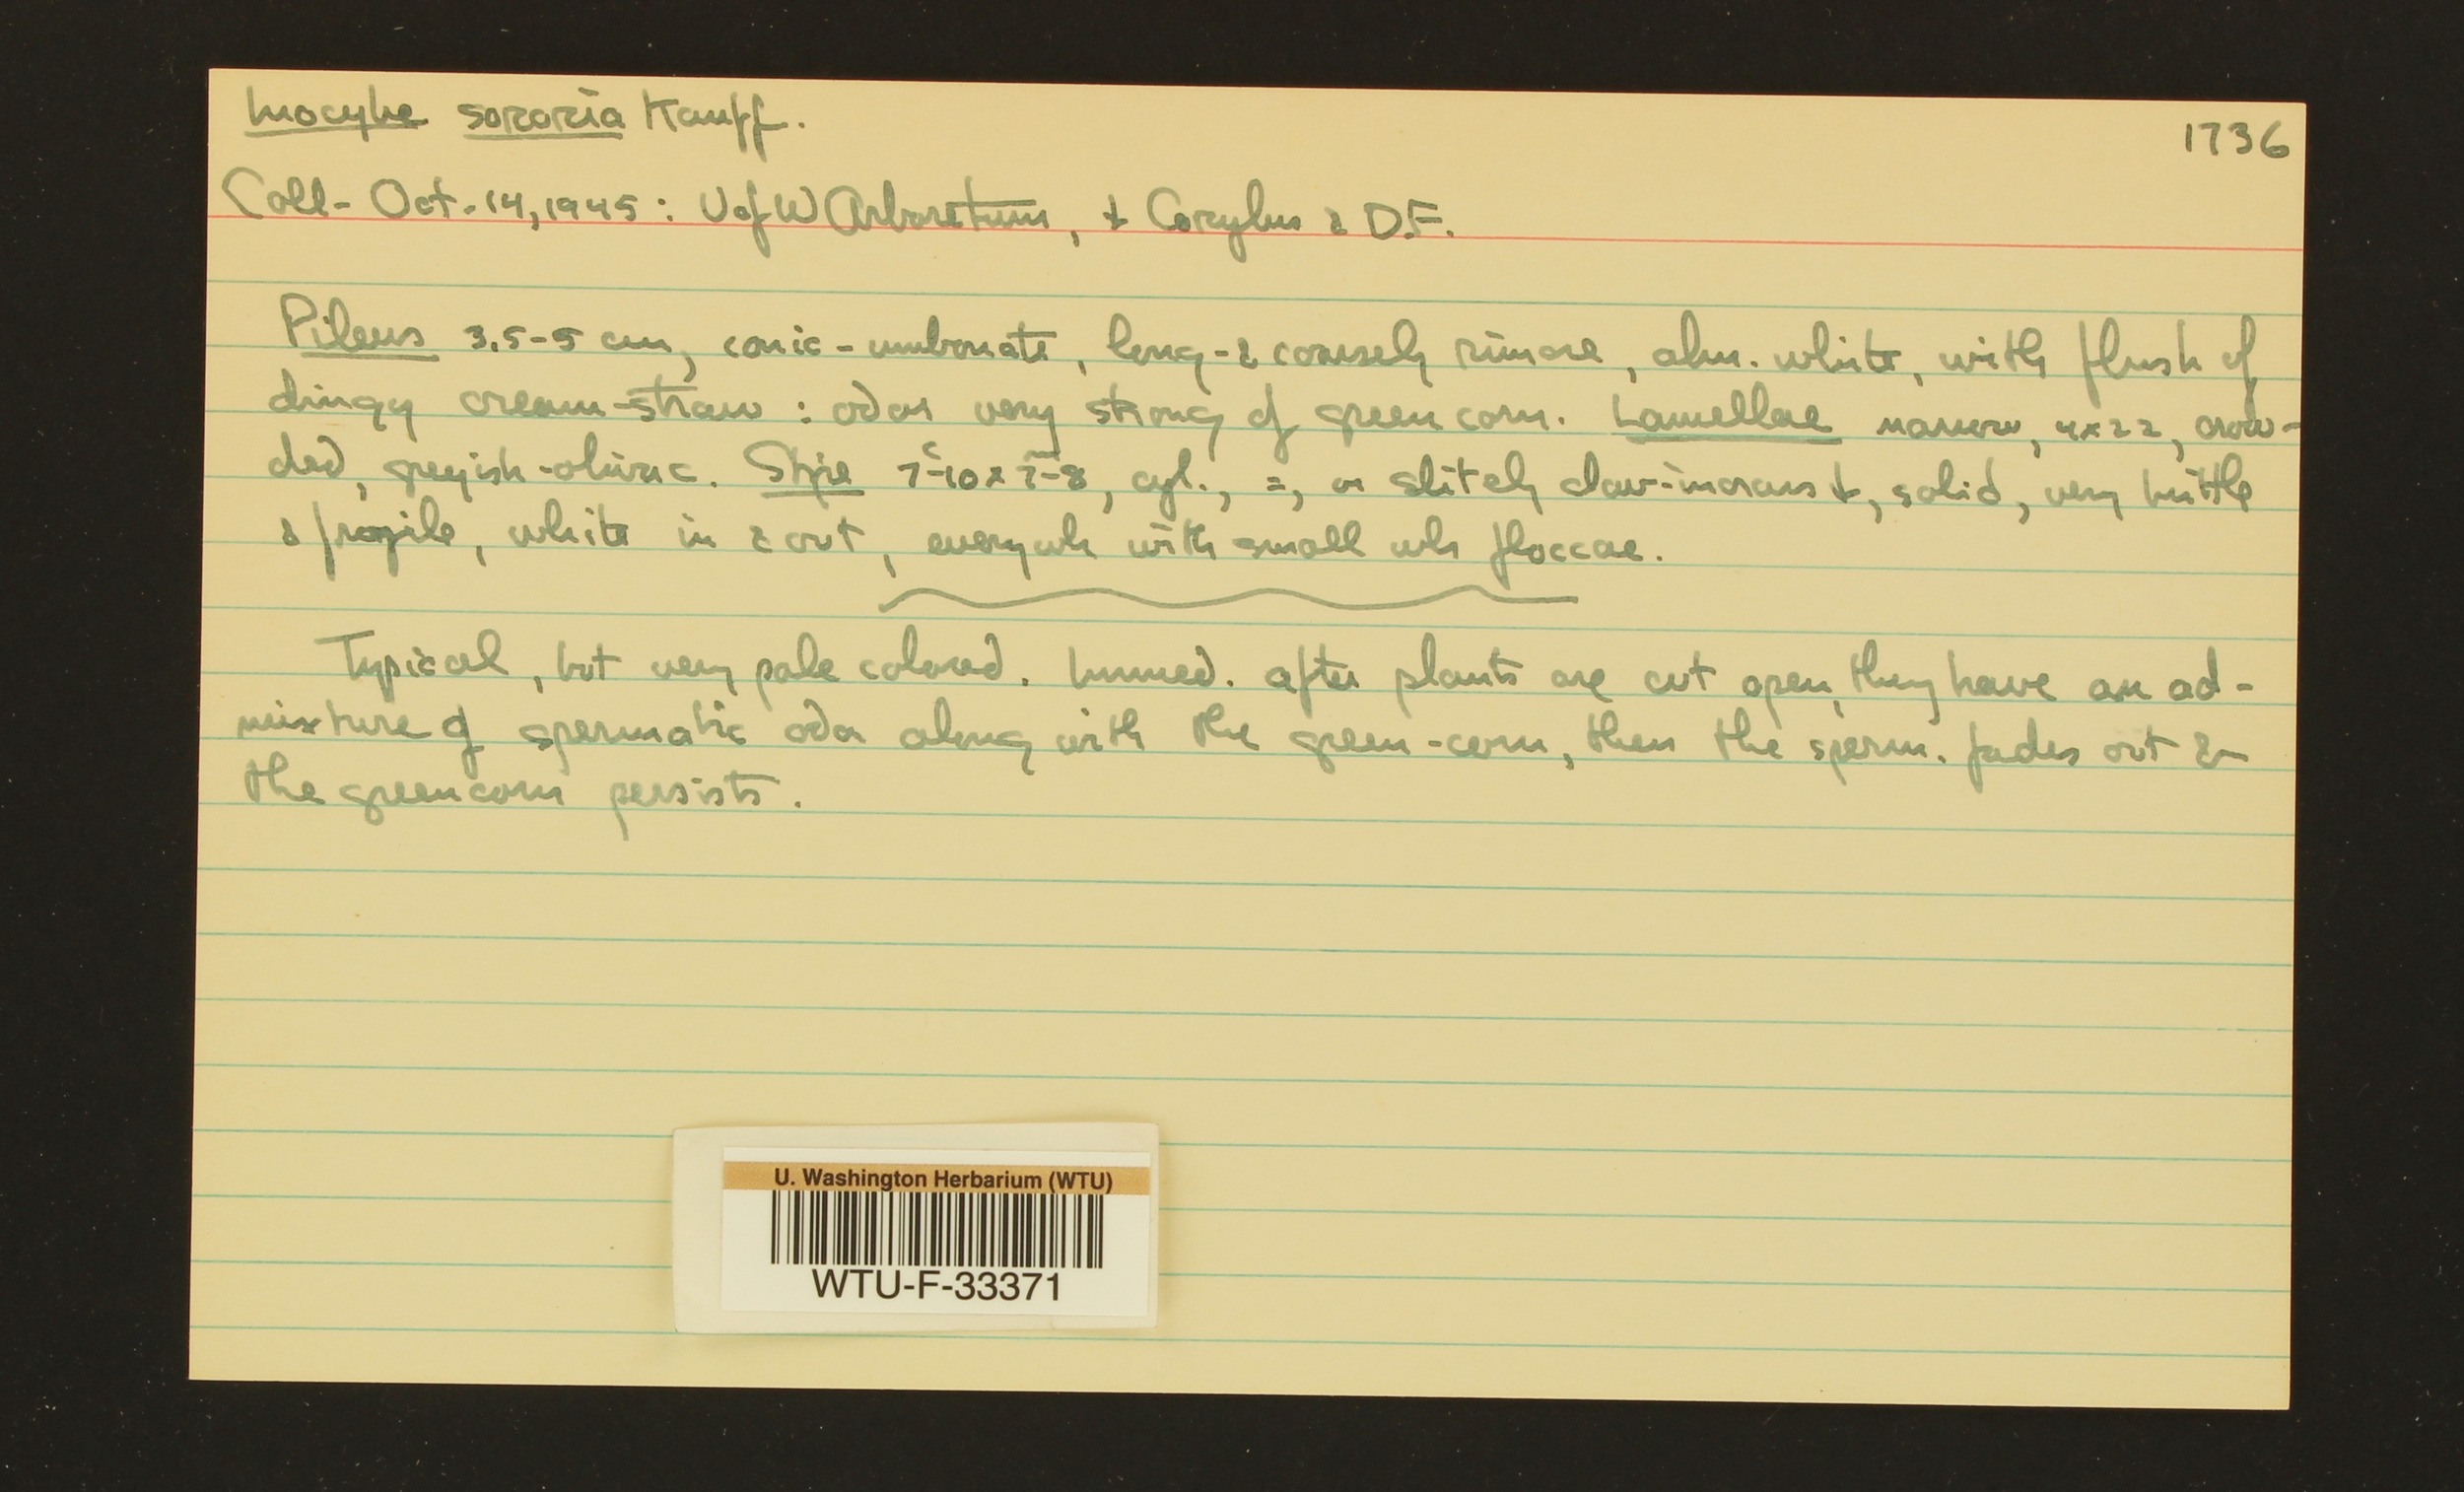 Inocybe sororia Kauff.
1736
Coll- Oct. 14, 1945: U of W Arboretum, ↓ Corylus & D.F.
Pileus 3.5-5 cm, conic-umbonate, long-& coarsely rimose, alm. white, with flush of
dingy cream-straw : odor very strong of green corn. Lamellae narrow, 4x22, crow-
ded, greyish-olivac. Stipe 7-10 x 7-8, cyl., =, or slitely clav-incras ↓, solid, very brittle
& fragile, white in & out, everywh with small wh floccae.
Typical, but very pale colored. Immed. after plants are cut open, they have an ad-
mixture of spermatic odor along with the green-corn, then the sperm. fades out &
the greencorn persists.
U. Washington Herbarium (WTU)
WTU-F-33371